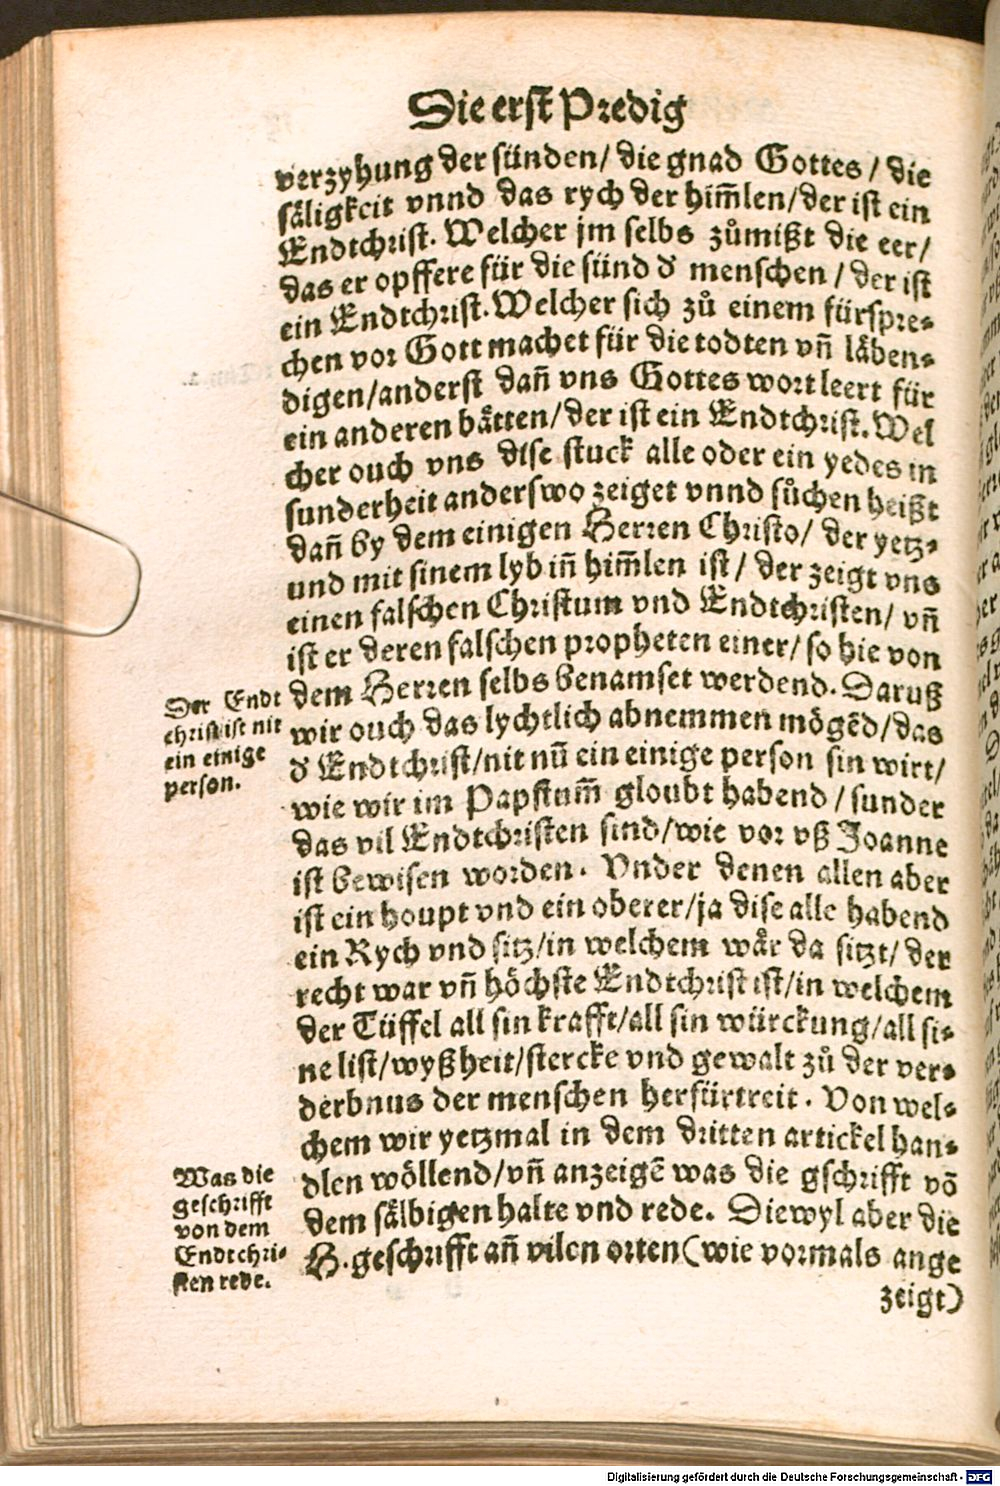 Die erst Predig
verzyhung der sünden/ die gnad Gottes / die
säligkeit vnnd das rych der him̃len/der ist ein
Endtchrist. Welcher jm selbs zůmißt die eer/
das er opffere für die sünd d' menschen / der ist
ein Endtchrist. Welcher sich zů einem fürspre-
chen vor Gott machet für die todten vñ läben-
digen/anderst dañ vns Gottes wort leert für
ein anderen bätten/der ist ein Endtchrist. Wel
cher ouch vns dise stuck alle oder ein yedes in
sunderheit anderswo zeiget vnnd sůchen heißt
dañ by dem einigen Herren Christo/ der yetz-
und mit sinem lyb iñ him̃len ist/ der zeigt vns
einen falschen Christum vnd Endtchristen/ vñ
ist er deren falschen propheten einer/ so hie von
dem Herren selbs benamset werdend. Daruß
wir ouch das lychtlich abnemmen mögēd/das
d' Endtchrist/nit nū ein einige person sin wirt/
wie wir im Papstum̃ gloubt habend / sunder
das vil Endtchristen sind/wie vor vß Joanne
ist bewisen worden. Vnder denen allen aber
ist ein houpt vnd ein oberer/ja dise alle habend
ein Rych vnd sitz/in welchem wår da sitzt/ der
recht war vñ höchste Endtchrist ist/in welchem
der Tüffel all sin krafft/all sin würckung/all si-
ne list/wyßheit/stercke vnd gewalt zů der ver-
derbnus der menschen herfürtreit. Von wel-
chem wir yetzmal in dem dritten artickel han-
dlen wöllend/vñ anzeigē was die gschrifft vō
dem sälbigen halte vnd rede. Diewyl aber die
H. geschrifft añ vilen orten(wie vormals ange
zeigt)
Der Endt
christ ist nit
ein einige
person.
Was die
geschrifft
von dem
Endtchri-
sten rede.
Digitalisierung gefördert durch die Deutsche Forschungsgemeinschaft - DFG